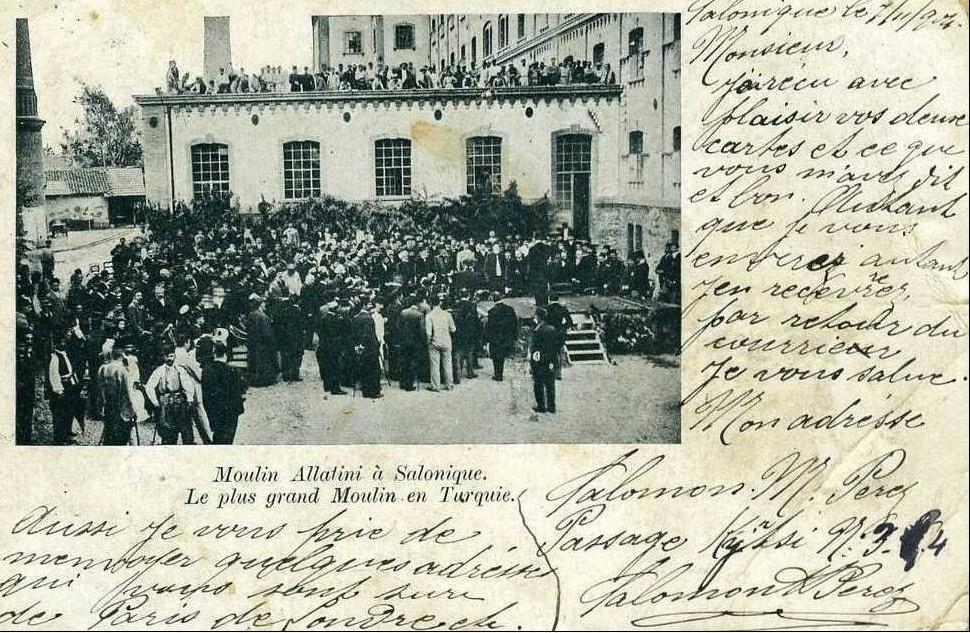 Salonique le 7/11/904
Monsieur,
J'ai reçu avec
plaisir vos deux
cartes et ce que
vous m'avez dit
et bon. Autant
que je vous
enverez autant
j'en recevrez,
par retour du
courrieur
Je vous salue.
Mon adresse
Salomon. M. Perez
Passage N. 3
Salomon M Perez
Moulin Allatini à Salonique.
Le plus grand Moulin en Turquie.
Aussi je vous prie de
m'envoyer quelques adresse
qui vous sont sure
de Paris de Londre etc.